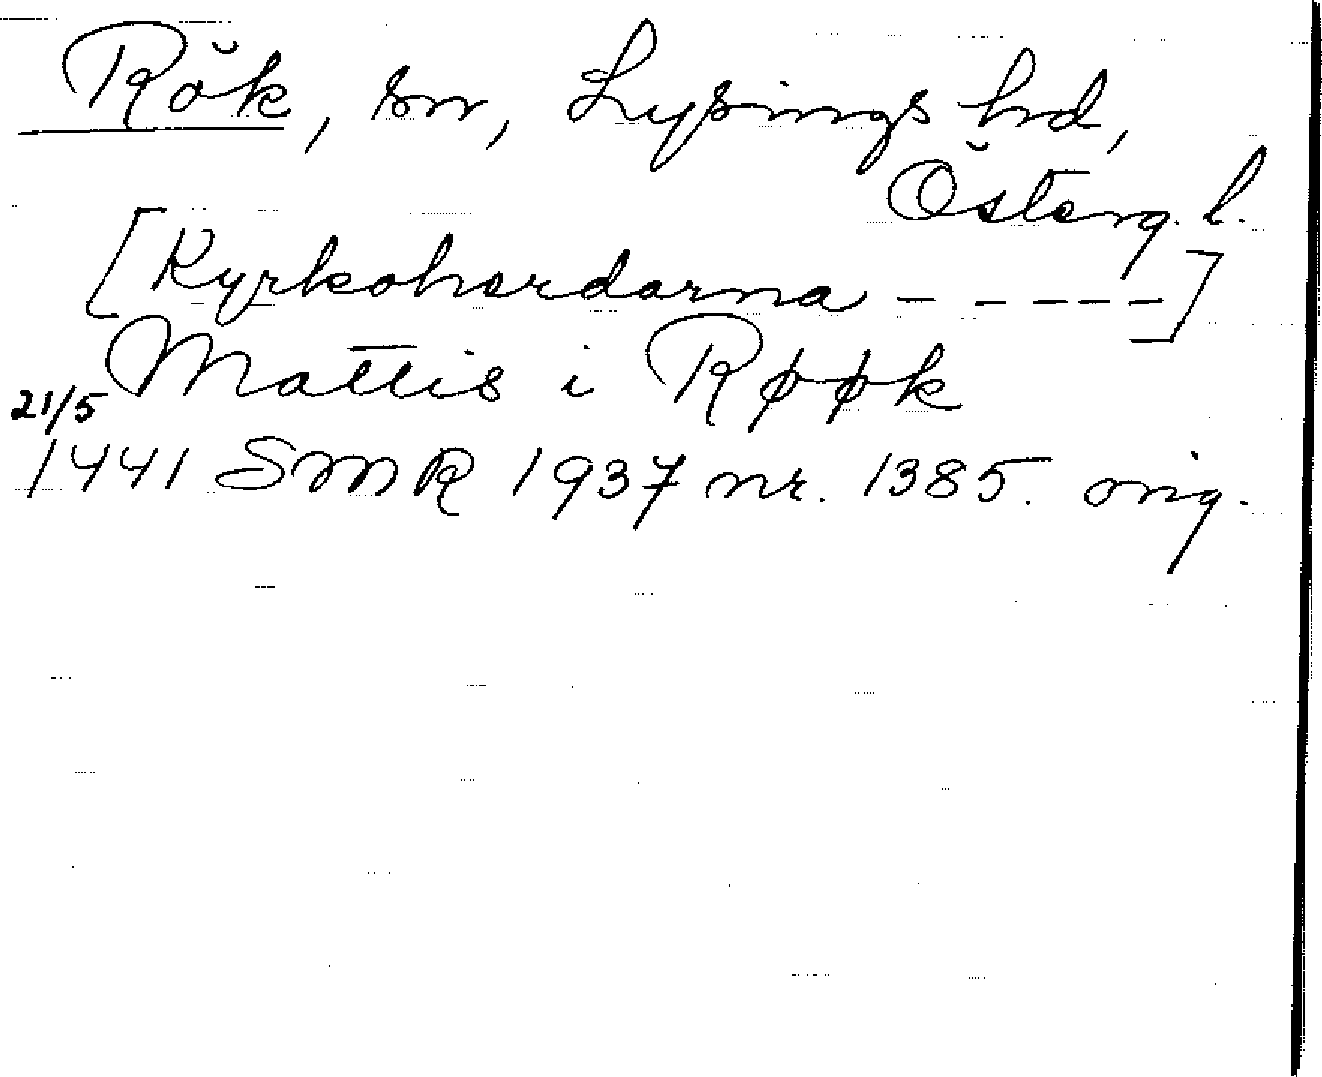 Rök, sn, Lysings hd,
Österg. l.
[Kyrkoherdarna - - - - -]
Mattis i Røøk
21/5
1441 SMR 1937 nr. 1385. orig.